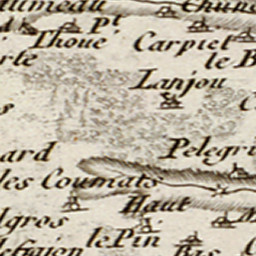 Pt
Thoue
Carpiet
le B
Lanjou
ard
Pelegri
les Coumats
Haut
lgros
le Pin
Bas